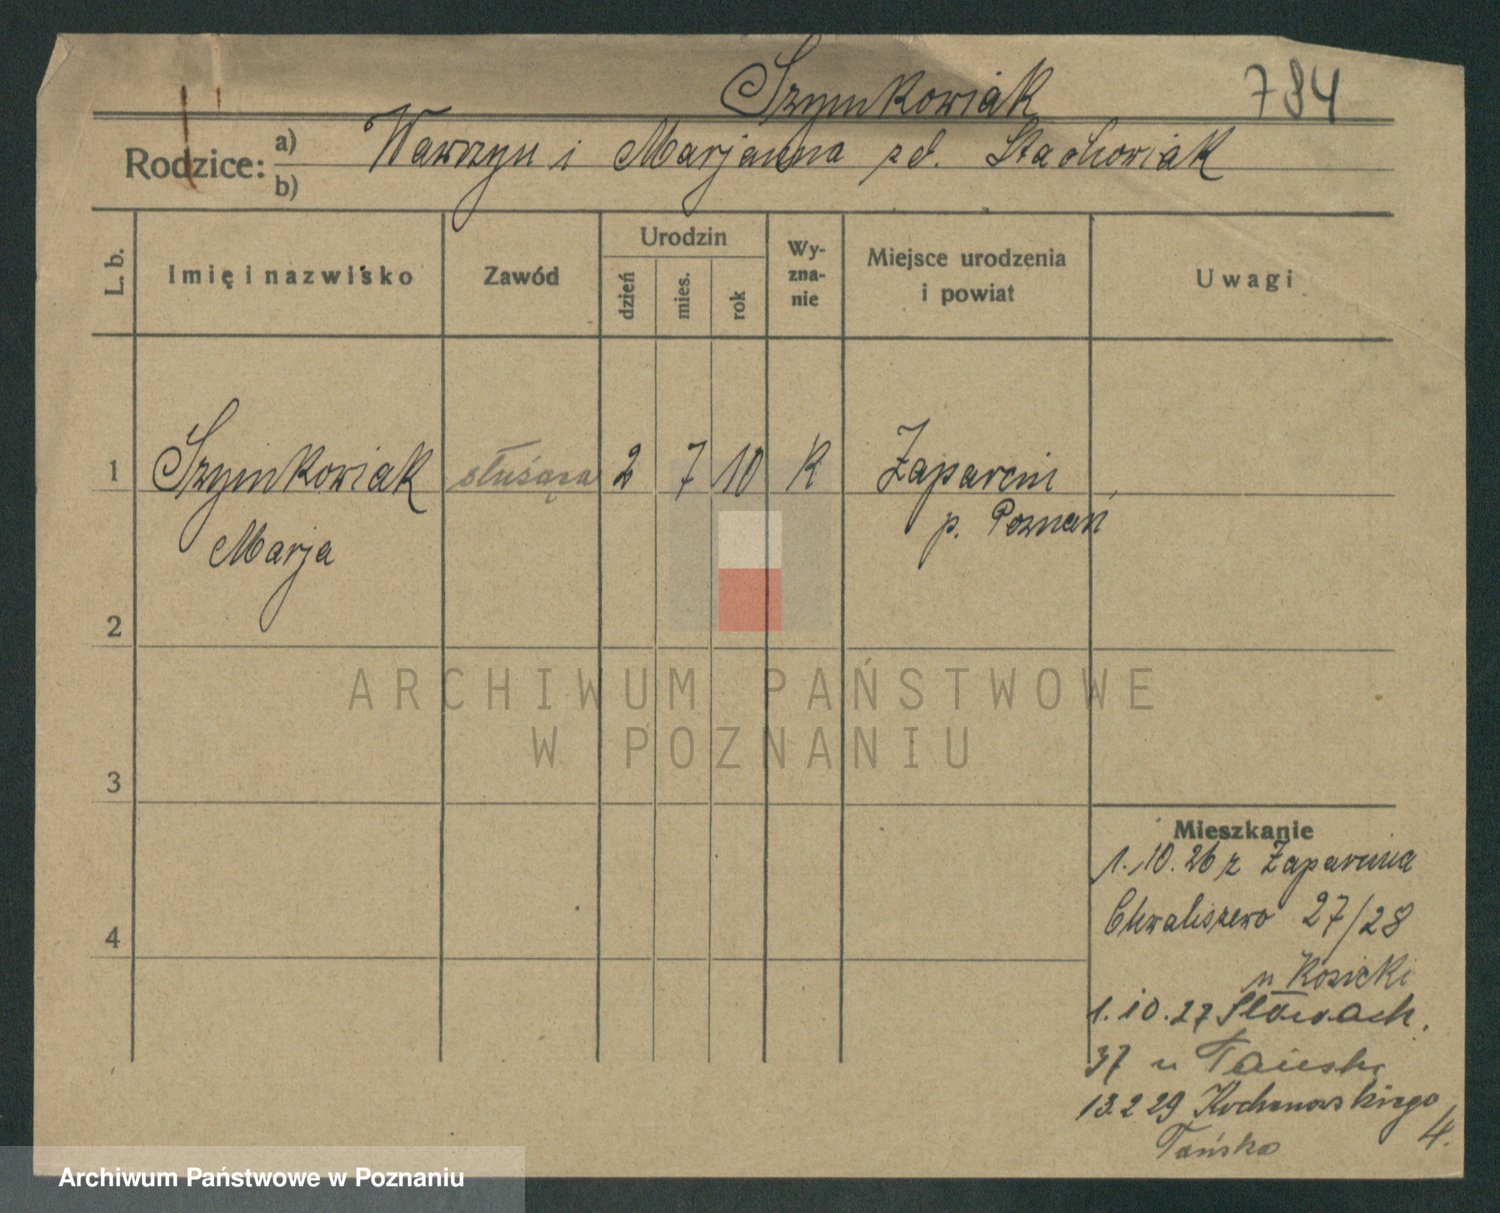 Szymkowiak 784
Rodzice: a) Wawrzyn i Marjanna zd. Stachowiak
b)
L. b. Imię i nazwisko Zawód Urodzin dzień mies. rok Wy-zna-nie Miejsce urodzenia i powiat Uwagi
1 Szymkowiak służąca 2 7 10 K Zaparcin
Marja p. Poznań
2
ARCHIWUM PAŃSTWOWE
W POZNANIU
3
4
Mieszkanie
1.10.26 z Zaparcina
Chwaliszewo 27/28
u Kosicki
1.10.27 Słowach.
37 u
13.2 29 Kochanowskiego
4.
Tańska
Archiwum Państwowe w Poznaniu